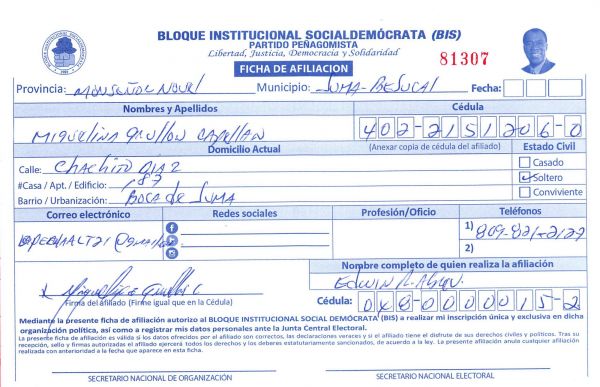 BLOQUE INSTITUCIONAL SOCIALDEMÓCRATA (BIS)
PARTIDO PEÑAGOMISTA
Libertad, Justicia, Democracia y Solidaridad
81307
FICHA DE AFILIACION
Provincia: MONSEÑOR NOUEL Municipio: JUMA-BEJUCAL Fecha:
Nombres y Apellidos Cédula
MIGUELINA GRULLON CAPELLAN 402-2151206-0
Domicilio Actual (Anexar copia de cédula del afiliado) Estado Civil
Calle: CHACHITO DIAZ Casado
#Casa / Apt. / Edificio: 187 Soltero
Barrio / Urbanización: BOCA de JUMA Conviviente
Correo electrónico Redes sociales Profesión/Oficio Teléfonos
1) 809-821-2127
2)
Nombre completo de quien realiza la afiliación
EDWIN
Firma del afiliado (Firme igual que en la Cédula) Cédula: 048-0000015-2
Mediante la presente ficha de afiliación autorizo al BLOQUE INSTITUCIONAL SOCIAL DEMÓCRATA (BIS) a realizar mi inscripción única y exclusiva en dicha
organización política, así como a registrar mis datos personales ante la Junta Central Electoral.
La presente ficha de afiliación es válida si los datos ofrecidos por el afiliado son correctos, las declaraciones veraces y si el afiliado tiene el disfrute de sus derechos civiles y políticos. Tras su
recepción, sello y firmas autorizadas el afiliado ejercerá todos los derechos y los deberes estatutariamente sancionados, de acuerdo a la ley. La presente afiliación anula cualquier afiliación
realizada con anterioridad a la fecha que aparece en esta ficha.
SECRETARIO NACIONAL DE ORGANIZACIÓN SECRETARIO NACIONAL ELECTORAL